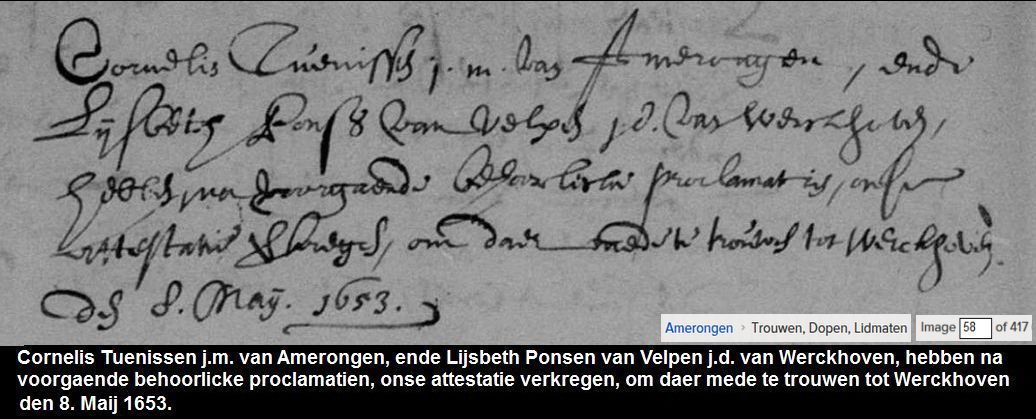 Cornelis Tuenissen j. m. van Amerongen, ende
Lijsbeth Ponsen van Velpen j d. van Werckhoven,
hebben na voorgaende behoorlicke proclamatien, onse
attestatie verkregen, om daer mede te trouwen tot Werckhoven.
den 8. Maij. 1653.
Amerongen › Trouwen, Dopen, Lidmaten Image 58 of 417
Cornelis Tuenissen j.m. van Amerongen, ende Lijsbeth Ponsen van Velpen j.d. van Werckhoven, hebben na
voorgaende behoorlicke proclamatien, onse attestatie verkregen, om daer mede te trouwen tot Werckhoven
den 8. Maij 1653.